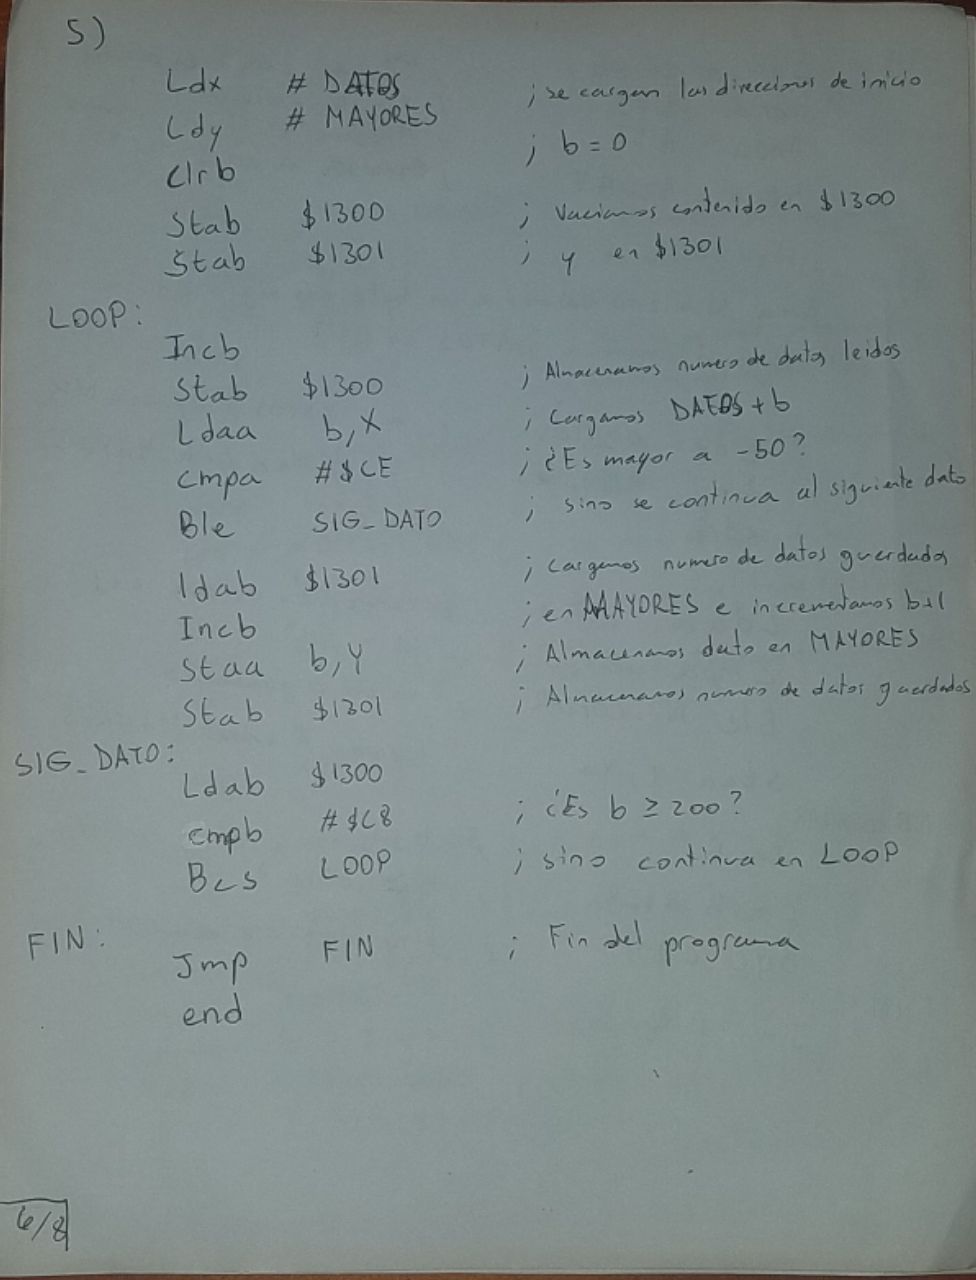 5)
Ldx # DATOS ; se cargan las direcciones de inicio
Ldy # MAYORES
Clrb ; b = 0
Stab $1300 ; Vaciamos contenido en $1300
Stab $1301 ; y en $1301
LOOP:
Incb
Stab $1300 ; Almacenamos numero de datos leidos
Ldaa b,X ; Cargamos DATOS + b
cmpa #$CE ; ¿Es mayor a -50?
Ble SIG_DATO ; sino se continua al siguiente dato
ldab $1301 ; Cargamos numero de datos guardados
Incb ; en MAYORES e incrementamos b+1
Staa b,Y ; Almacenamos dato en MAYORES
Stab $1301 ; Almacenamos numero de datos guardados
SIG_DATO:
Ldab $1300
cmpb #$C8 ; ¿Es b ≥ 200?
Bcs LOOP ; sino continua en LOOP
FIN:
Jmp FIN ; Fin del programa
end
6/8